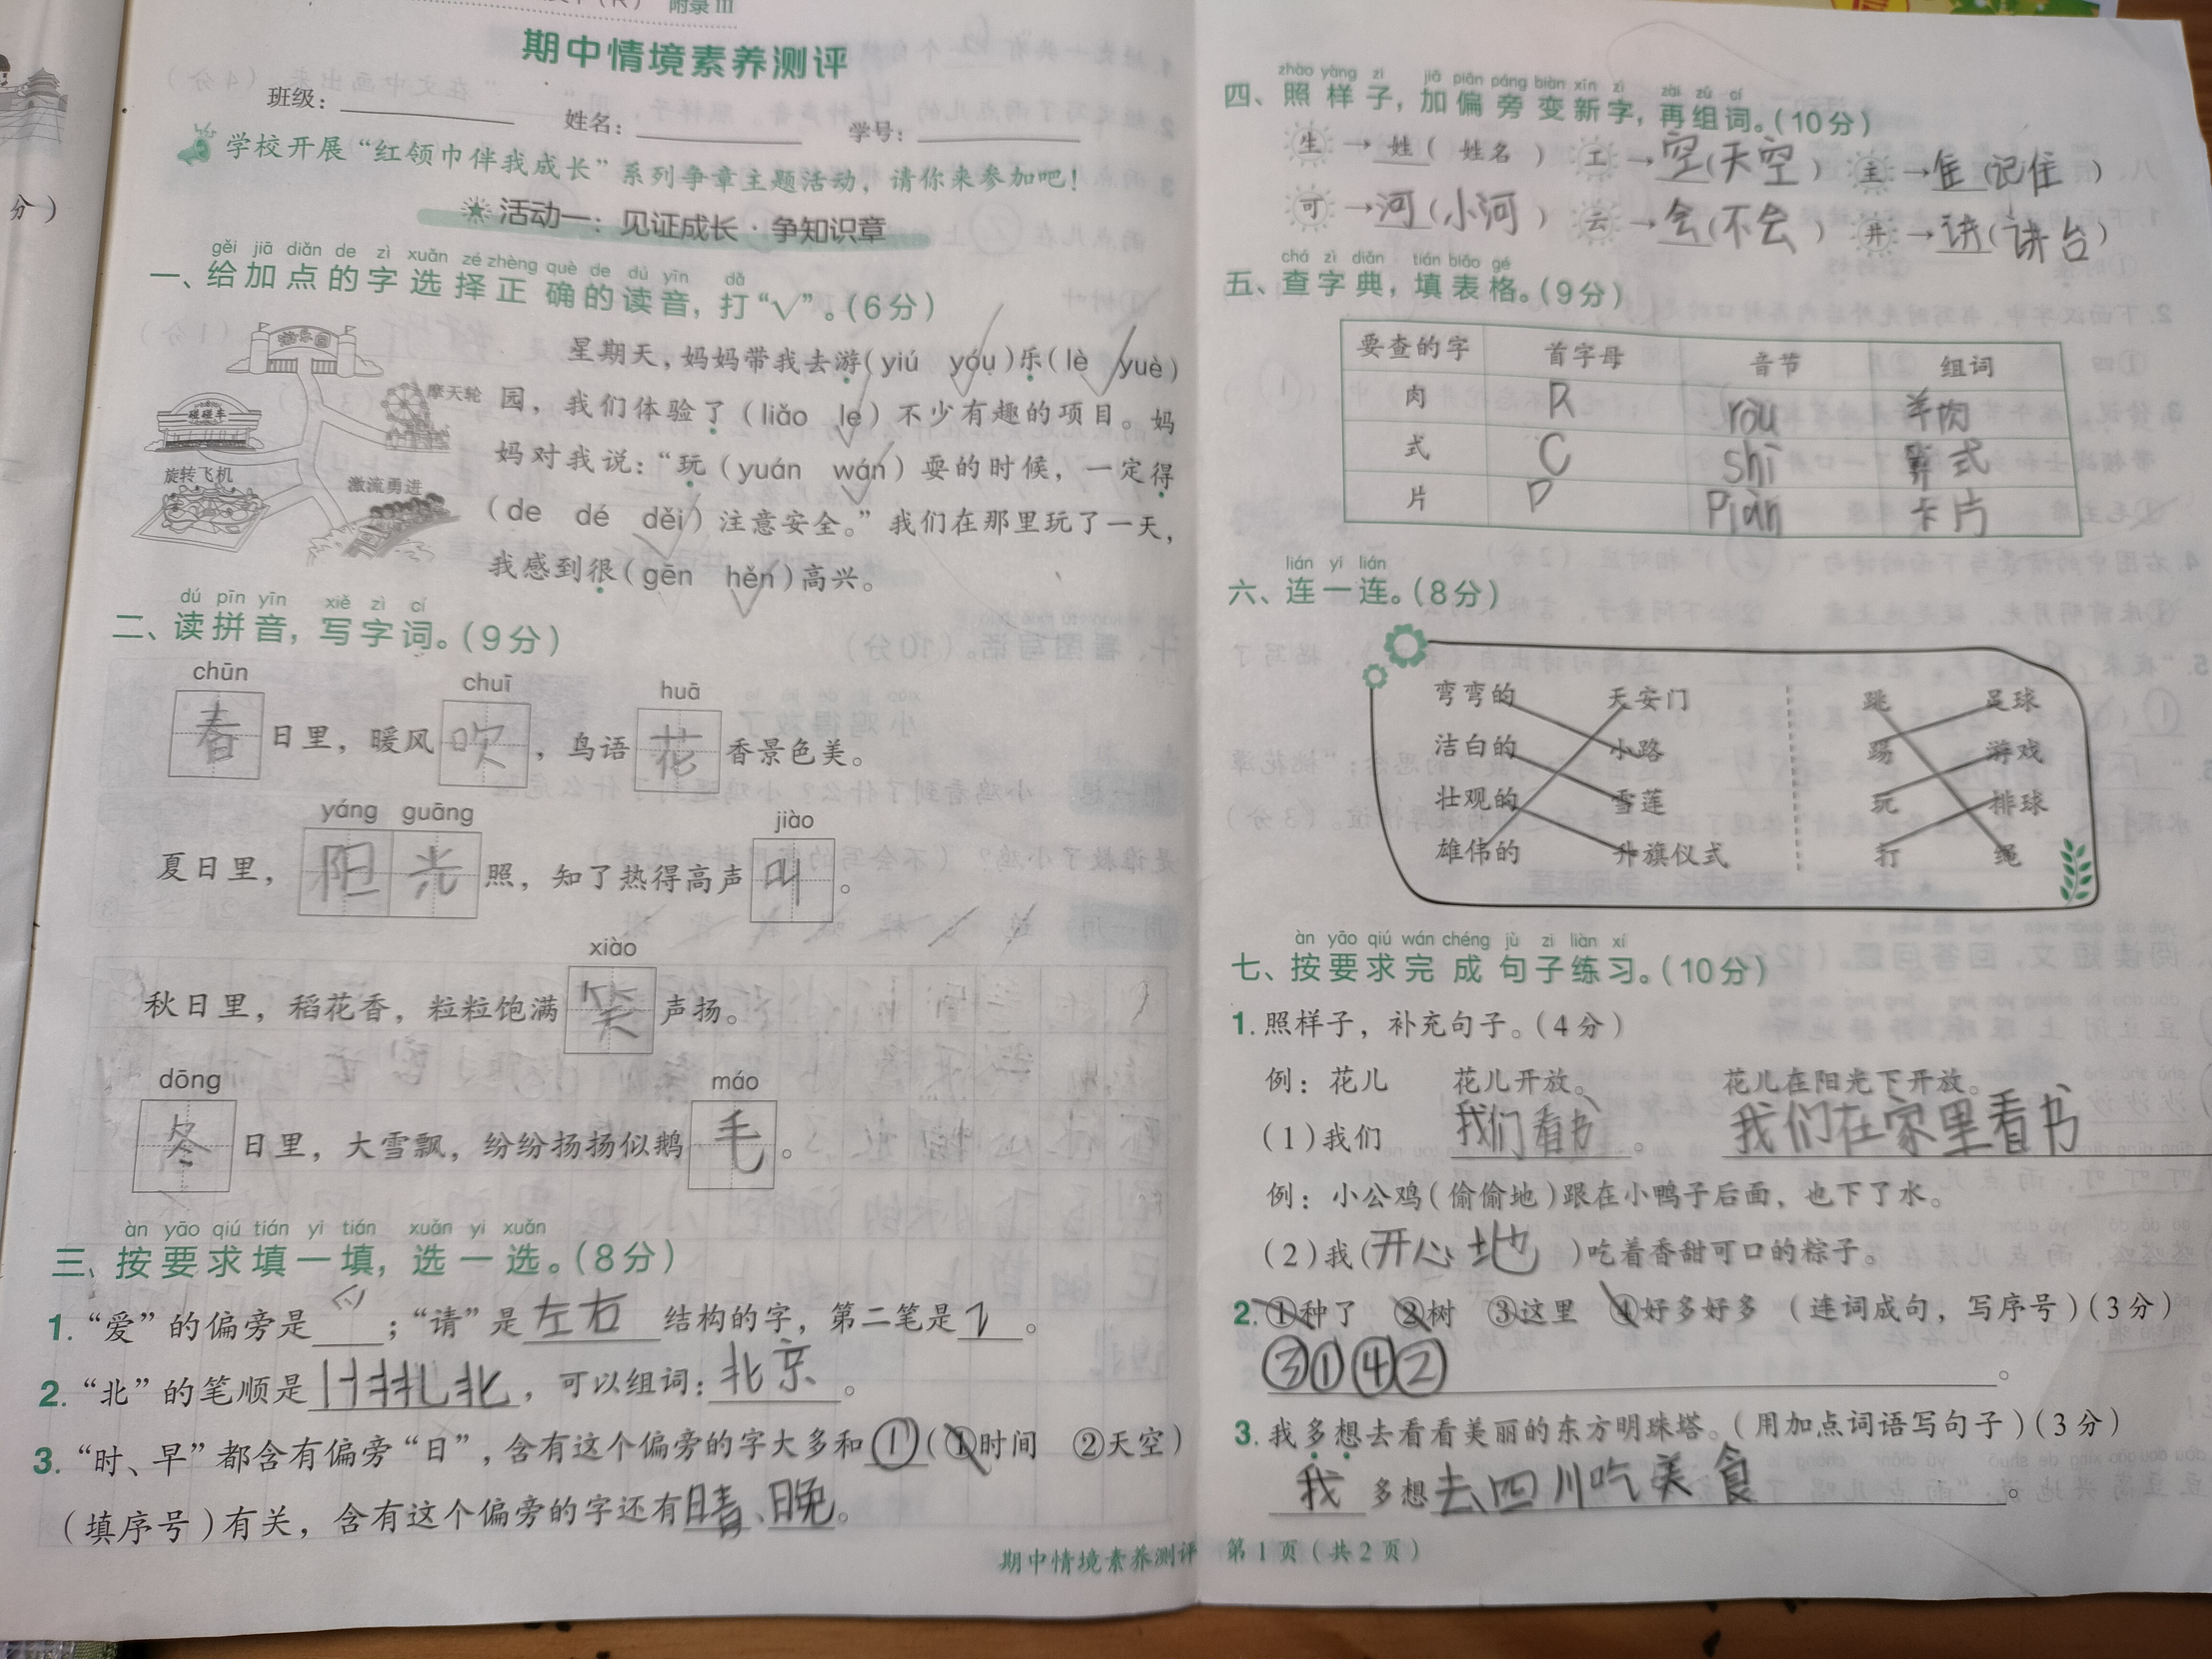 附录Ⅲ
期中情境素养测评
班级： 姓名： 学号：
学校开展“红领巾伴我成长”系列争章主题活动，请你来参加吧！
活动一：见证成长·争知识章
gěi jiā diǎn de zì xuǎn zé zhèng què de dú yīn dǎ
一、给加点的字选择正确的读音，打“√”。（6分）
游乐园
摩天轮
碰碰车
旋转飞机
激流勇进
星期天，妈妈带我去游（yiú yóu）乐（lè yuè）
园，我们体验了（liǎo le）不少有趣的项目。妈
妈对我说：“玩（yuán wán）耍的时候，一定得
（de dé děi）注意安全。”我们在那里玩了一天，
我感到很（gēn hěn）高兴。
dú pīn yīn xiě zì cí
二、读拼音，写字词。（9分）
chūn chuī huā
春日里，暖风吹，鸟语花香景色美。
yáng guāng jiào
夏日里，阳光照，知了热得高声叫。
xiào
秋日里，稻花香，粒粒饱满笑声扬。
dōng máo
冬日里，大雪飘，纷纷扬扬似鹅毛。
àn yāo qiú tián yi tián xuǎn yi xuǎn
三、按要求填一填，选一选。（8分）
1.“爱”的偏旁是爫；“请”是左右结构的字，第二笔是㇊。
2.“北”的笔顺是，可以组词：北京。
3.“时、早”都含有偏旁“日”，含有这个偏旁的字大多和①（①时间 ②天空）
（填序号）有关，含有这个偏旁的字还有晴、晚。
zhào yàng zi jiā piān páng biàn xīn zì zài zǔ cí
四、照样子，加偏旁变新字，再组词。（10分）
生→姓（姓名） 工→空（天空） 主→住（记住）
可→河（小河） 云→会（不会） 井→讲（讲台）
chá zì diǎn tián biǎo gé
五、查字典，填表格。（9分）
要查的字 首字母 音节 组词
肉 R ròu 羊肉
式 C shì 算式
片 P Piàn 卡片
lián yi lián
六、连一连。（8分）
弯弯的 天安门 跳 足球
洁白的 小路 踢 游戏
壮观的 雪莲 玩 排球
雄伟的 升旗仪式 打 绳
àn yāo qiú wán chéng jù zi liàn xí
七、按要求完成句子练习。（10分）
1.照样子，补充句子。（4分）
例：花儿 花儿开放。 花儿在阳光下开放。
（1）我们 我们看书。 我们在家里看书
例：小公鸡（偷偷地）跟在小鸭子后面，也下了水。
（2）我（开心地）吃着香甜可口的粽子。
2.①种了 ②树 ③这里 ④好多好多 （连词成句，写序号）（3分）
③①④②。
3.我多想去看看美丽的东方明珠塔。（用加点词语写句子）（3分）
我多想去四川吃美食。
期中情境素养测评 第1页（共2页）